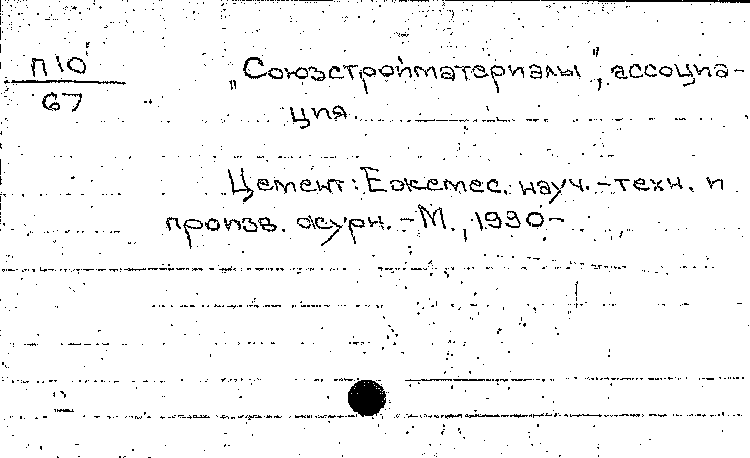 П10
67
„Союзстройматериалы", ассоциа-
ция.
Цемент: Ежемес. науч.-техн. и
произв. журн. - М., 1990-